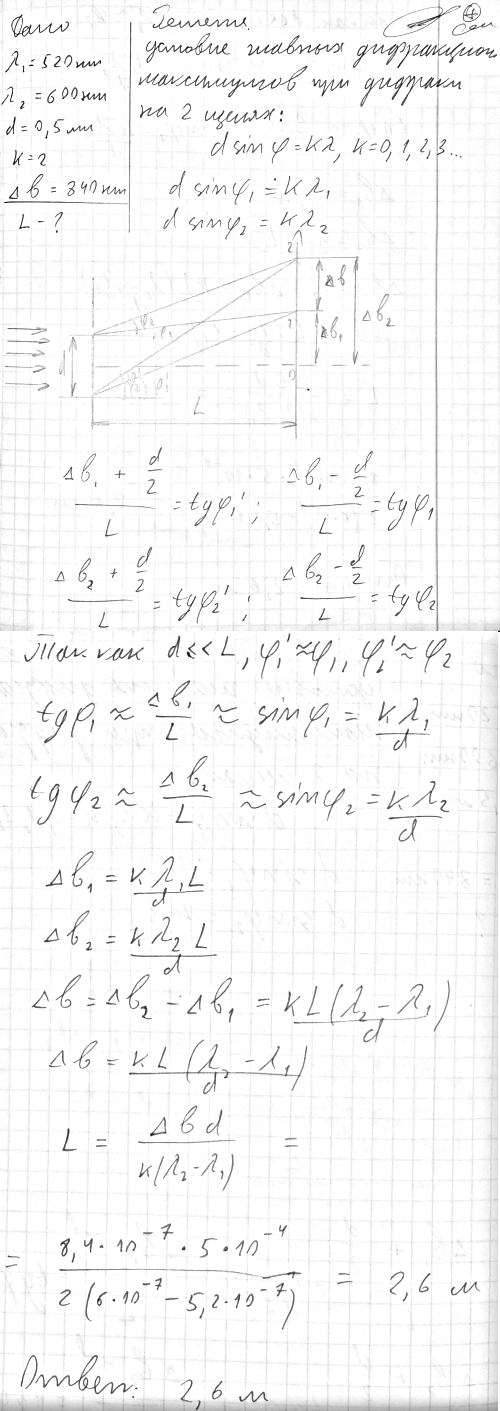 Дано
λ₁ = 520 нм
λ₂ = 600 нм
d = 0,5 мм
k = 2
Δb = 840 нм
L - ?
Решение
условие главных дифракцион
максимумов при дифракц
на 2 щелях:
d sin φ = kλ, k = 0, 1, 2, 3...
d sin φ₁ = kλ₁
d sin φ₂ = kλ₂
2
1
0
φ₂
φ₁
φ₂'
φ₁'
d
L
Δb
Δb₁
Δb₂
(Δb₁ + d/2)/L = tg φ₁' ; (Δb₁ - d/2)/L = tg φ₁
(Δb₂ + d/2)/L = tg φ₂' ; (Δb₂ - d/2)/L = tg φ₂
Так как d << L, φ₁' ≈ φ₁, φ₂' ≈ φ₂
tg φ₁ ≈ Δb₁/L ≈ sin φ₁ = kλ₁/d
tg φ₂ ≈ Δb₂/L ≈ sin φ₂ = kλ₂/d
Δb₁ = kλ₁L/d
Δb₂ = kλ₂L/d
Δb = Δb₂ - Δb₁ = kL(λ₂ - λ₁)/d
Δb = kL(λ₂ - λ₁)/d
L = Δb d/k(λ₂ - λ₁) =
= 8,4·10⁻⁷ · 5·10⁻⁴/2(6·10⁻⁷ - 5,2·10⁻⁷) = 2,6 м
Ответ: 2,6 м